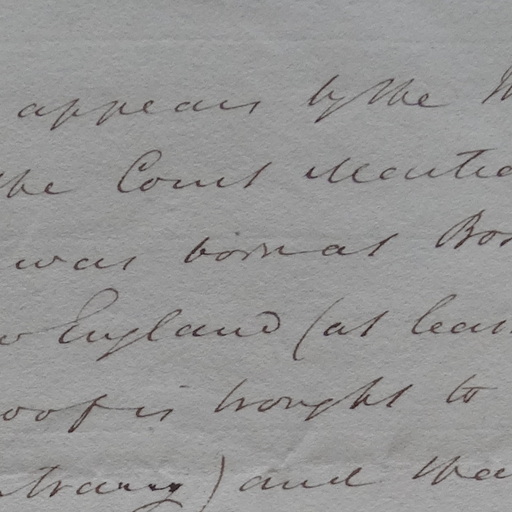 appears by the M
the Court Martia
was born at Bos
w England (at leas
oof is brought to
ntrary) and tha